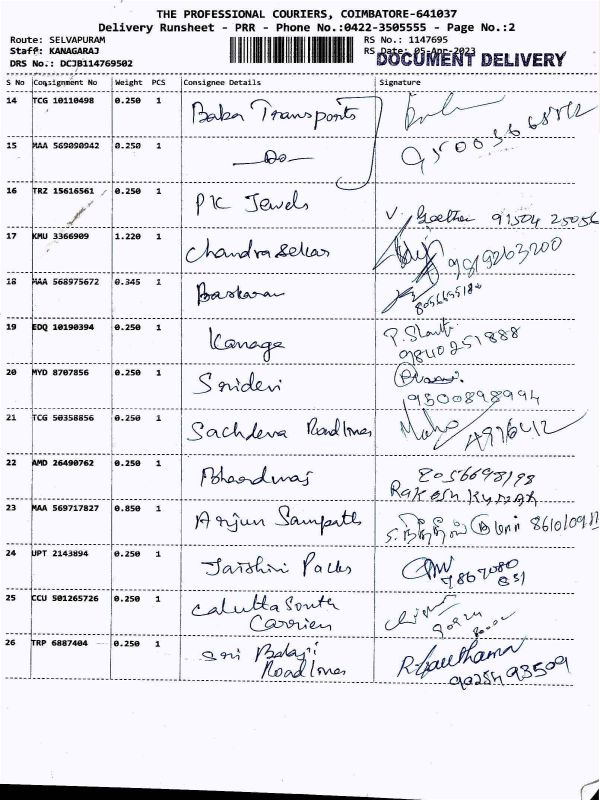 THE PROFESSIONAL COURIERS, COIMBATORE-641037
Delivery Runsheet - PRR - Phone No.:0422-3505555 - Page No.:2
Route: SELVAPURAM RS No.: 1147695
Staff: KANAGARAJ RS Date: 05-Apr-2023
DOCUMENT DELIVERY
DRS No.: DCJB114769502
S No Consignment No Weight PCS Consignee Details Signature
14 TCG 10110498 0.250 1 Baba Transports
15 MAA 569090942 0.250 1 —Do—
16 TRZ 15616561 0.250 1 PK Jewels V. Geetha 91504 25056
17 KMU 3366909 1.220 1 Chandra Sekar 9819263200
18 MAA 568975672 0.345 1 Baskaran
19 EDQ 10190394 0.250 1 Kanaga 9840251888
20 MYD 8707856 0.250 1 Sridevi 9500898994
21 TCG 50358856 0.250 1 Sachdeva Roadlines
22 AMD 26490762 0.250 1 Bhardwaj 8056698198
RAKESH KUMAR
23 MAA 569717827 0.850 1 Arjun Sampath
24 UPT 2143894 0.250 1 Jaishini Packs 7867080
851
25 CCU 501265726 0.250 1 Calcutta South
Carriers
26 TRP 6887404 0.250 1 Sri Balaji R. Gauthaman
Roadlines